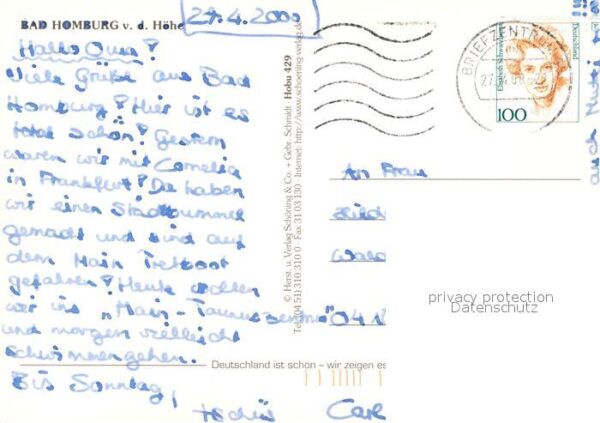 BAD HOMBURG v. d. Höhe
27.4.2000
Hallo Oma!
Viele Grüße aus Bad
Homburg! Hier ist es
total schön! Gestern
waren wir mit Cornelia
in Frankfurt! Da haben
wir einen Stadtbummel
gemacht und sind auf
dem Main Tretboot
gefahren! Heute wollen
wir ins "Main-Taunus-Zentrum"
und morgen vielleicht
schwimmen gehen.
Bis Sonntag,
tschüß
© Herst. u. Verlag Schöning & Co. + Gebr. Schmidt Hobu 429
Tel. (04 51) 310 310 0 - Fax 31 03 130 - Internet: http://www.schoening-verlag.de
Deutschland ist schön – wir zeigen es
BRIEFZENTRUM
Deutschland
100
An Frau
privacy protection
Datenschutz
auch